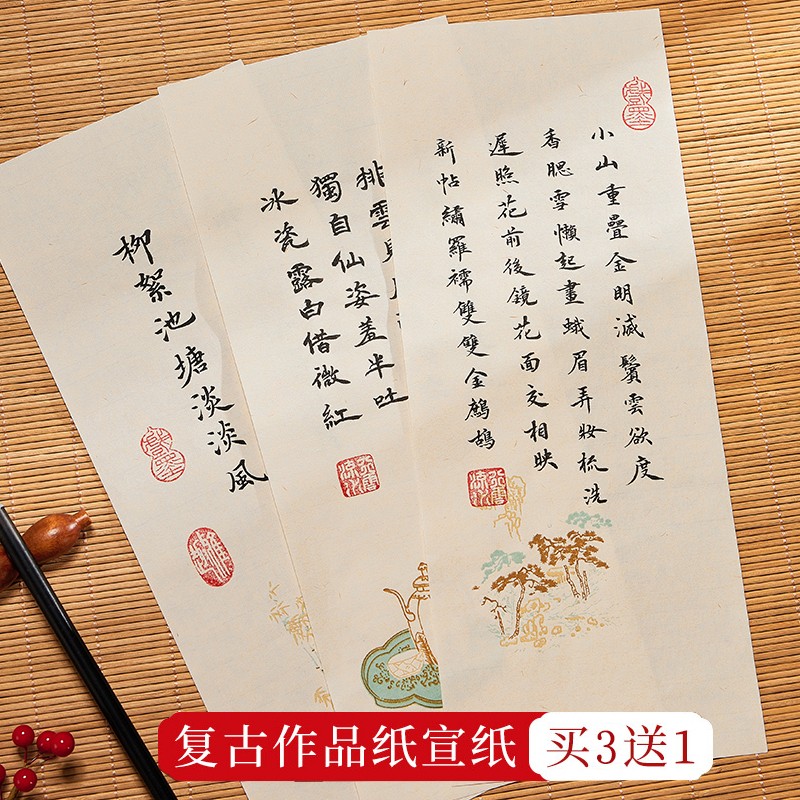 小山重疊金明滅鬢雲欲度
香腮雪懶起畫蛾眉弄妝梳洗
遲照花前後鏡花面交相映
新帖繡羅襦雙雙金鷓鴣
排雲
獨自仙姿羞半吐
冰瓷露白借微紅
柳絮池塘淡淡風
复古作品纸宣纸
买3送1